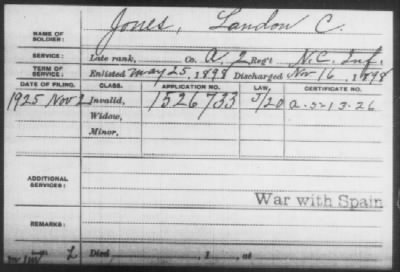 NAME OF SOLDIER: Jones, Landon C.
SERVICE: Late rank, Co. A, 2 Reg't N.C. Inf.
TERM OF SERVICE: Enlisted May 25, 1898 Discharged Nov 16, 1898
DATE OF FILING. CLASS. APPLICATION NO. LAW. CERTIFICATE NO.
1925 Nov 2 Invalid, 1526733 5/20 a-5-13-26
Widow,
Minor,
ADDITIONAL SERVICES:
War with Spain
REMARKS:
Died , 1 , at